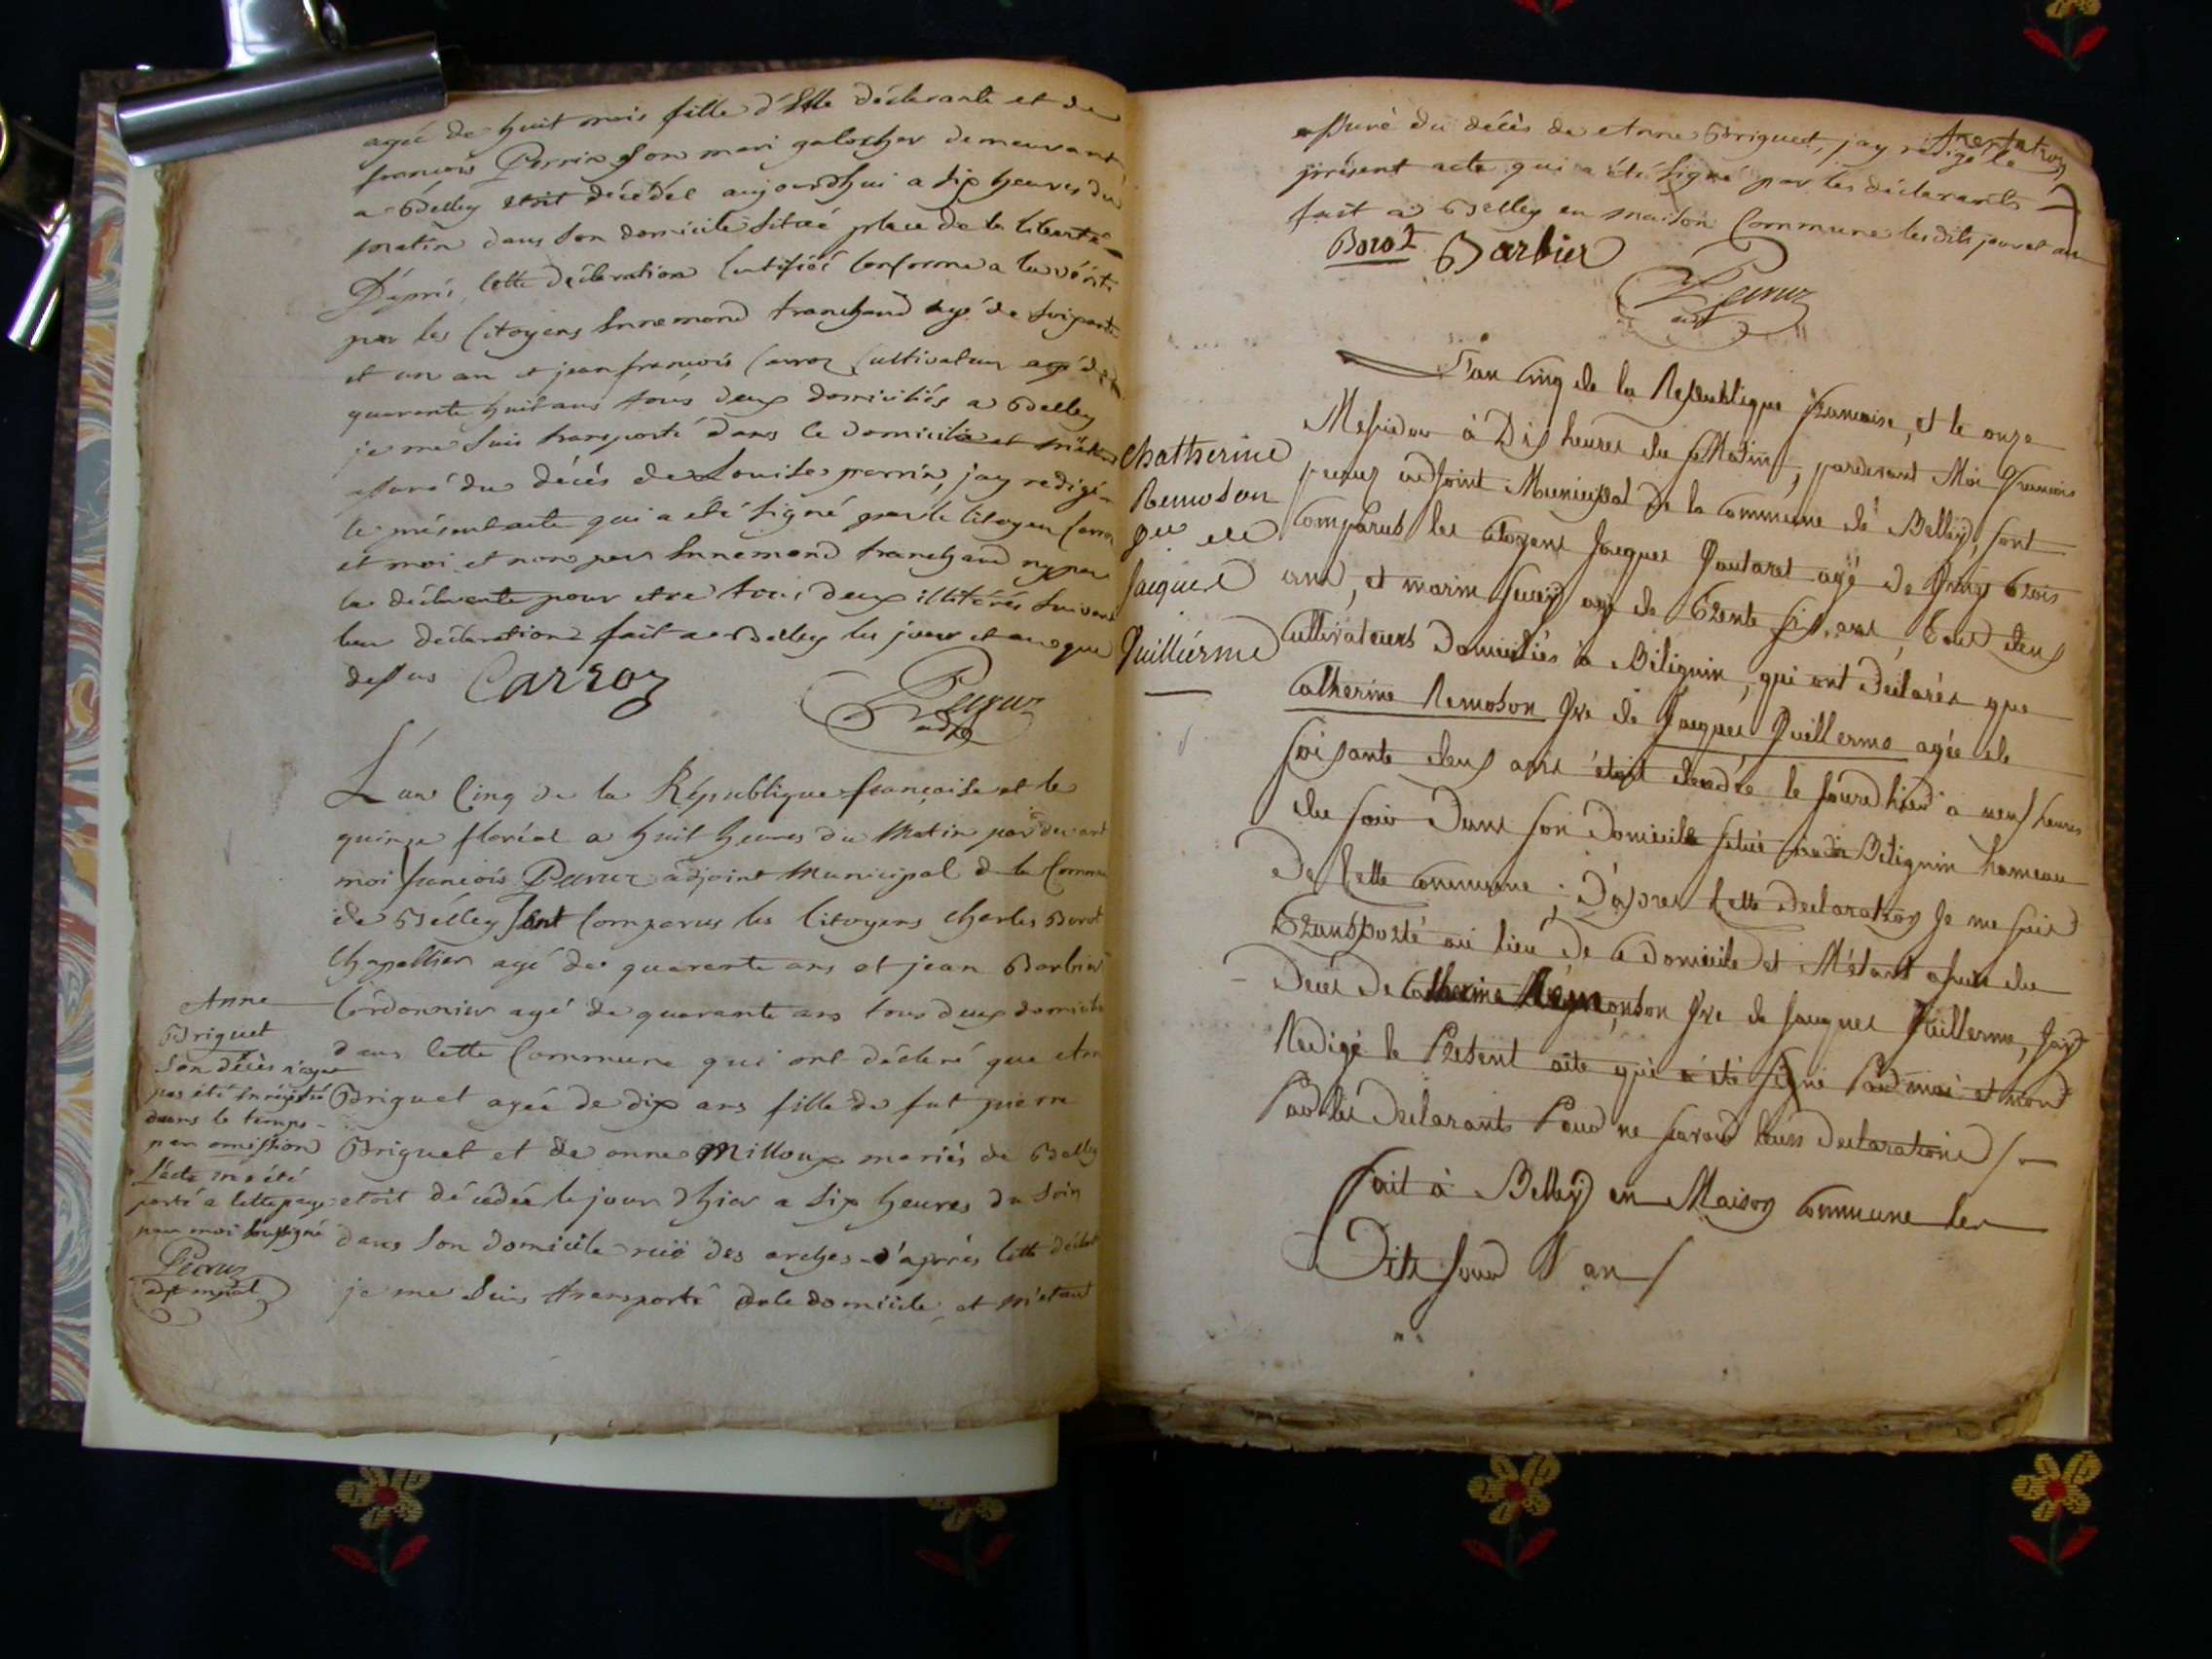 agée de huit mois fille d'Elle déclarante et de
francois Perrin son mari galocher demeurant
a Belley etoit décédée aujourdhui a six heures du
matin dans son domicile situé place de la liberté
D'après cette déclaration certifiée conforme a la vérité
par les Citoyens Innemond tranchand agé de soixante
et un an et jean francois Carroz Cultivateur agé de
quarante huit ans tous deux domiciliés a Belley
je me suis transporté dans ce domicile et m'etant
assuré du décès de Louise perrin, jay redigé
le présent acte qui a été signé par le Citoyen Carroz
et moi et non par Innemond tranchand ny par
la déclarante pour etre tous deux illitérés suivant
leur déclaration fait a Belley les jour et an que
dessus Carroz
Peyruz
adjt
L'an Cinq de la République française et le
quinze floréal a huit heures du Matin par devant
moi francois Peyruz adjoint Municipal de la Commune
de Belley sont Comparus les Citoyens Charles Borot
Chapellier agé de quarante ans et jean Barbier
Cordonnier agé de quarante ans tous deux domiciliés
dans cette Commune qui ont déclaré que Anne
Briguet agée de dix ans fille de fut pierre
Briguet et de anne Milloux mariés de Belley
etoit décédée le jour d'hier a six heures du soir
dans son domicile rüe des arches d'après cette déclaration
je me suis transporté dans le domicile, et m'etant
Anne
Briguet
Son décès n'ayant
pas été enrégistré
dans le temps
par omission
L'acte m'a été
porté a cette page
par moi soussigné
Peyruz
adjt mpal
assuré du décès de Anne Briguet, jay redigé le
présent acte qui a été signé par les déclarants
fait a Belley en maison Commune les dits jour et an
Borot Barbier
Peyruz
adjt
L'an Cinq de la Republique francaise, et le onze
Messidor à Dix heures du Matin, pardevant Moi francois
peyruz adjoint Municipal De la Commune de Belley, sont
Comparus les Citoyens Jacques Goutaret agé de
ans, et marin sucey agé de trente six ans, tous deux
Cultivateurs Domiciliés à Bilignin, qui ont Déclarés que
Catherine Remoson Vve de Jacques Guillerme agée de
soixante deux ans étoit décédée le jourd hier a neuf heures
du soir Dans son Domicile situé Bilignin hameau
De Cette commune; D'après Cette Declaration Je me suis
transporté au lieu De ce Domicile et M'étant assuré du
Décès De Catherine Remonson Vve de Jacques Guillerme, Jay
Redigé le Présent acte qui a été signé Par moi et non
Par les Declarants Pour ne savoir leurs declarations
fait à Belley en Maison Commune les
Dits Jour & an
Chatherine
Remoson
Vve de
Jacques
Guillierme